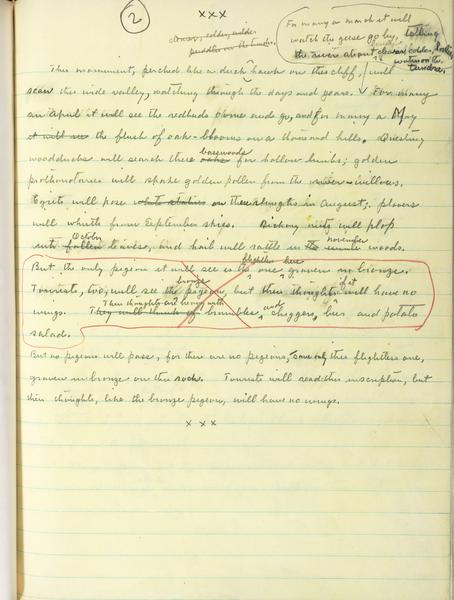 2
xxx
clearer, colder, wilder
puddles on the tundra.
For many a march it will
watch the geese go by, telling
the river about clearer, colder, lonelier
waters on the tundra.
This monument, perched like a duck hawk on this cliff, will
scan this wide valley, watching through the days and years. For many
an april it will see the redbuds come and go, and for many a May
it will see the flush of oak-blooms on a thousand hills. Questing
woodducks will search these basswoods for hollow limbs; golden
prothonotaries will shake golden pollen from the river willows.
Egrets will pose on these sloughs in August; plovers
will whistle from September skies. Hickory nuts will plop
into October leaves, and hail will rattle in november woods.
But the only pigeon it will see is the flightless one graven here in bronze.
Tourists, too, will see the bronze pigeon, but their thoughts of it will have no
wings. They will think of brambles and chiggers, beer and potato
salad.
But no pigeons will pass, for there are no pigeons, save only this flightless one,
graven in bronze on this rock. Tourists will read this inscription, but
their thoughts, like the bronze pigeon, will have no wings.
xxx